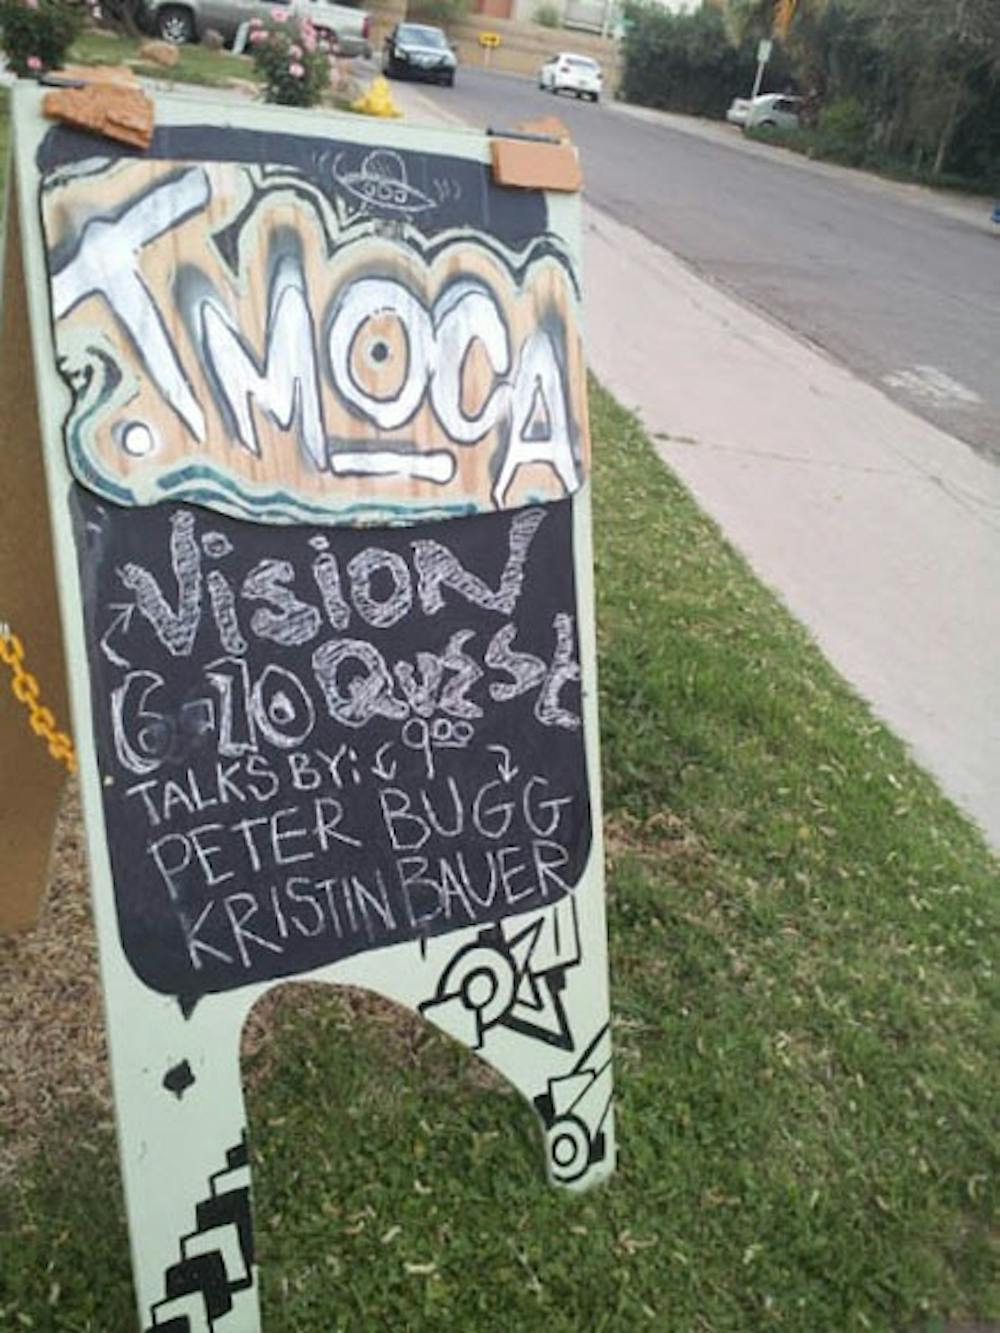 TMOCA
Vision
6-10 Quest
9:00
TALKS BY:
PETER BUGG
KRISTIN BAUER